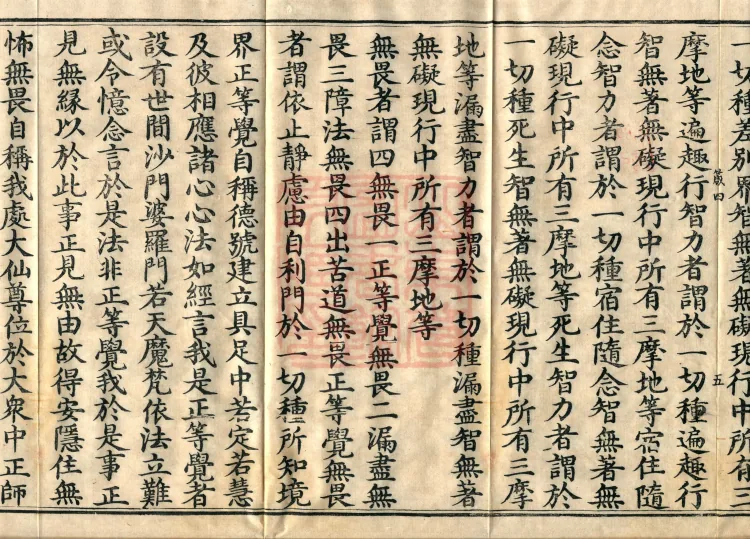 一切種差別界智無著無礙現行中所有三
箴四
五
摩地等遍趣行智力者謂於一切種遍趣行
智無著無礙現行中所有三摩地等宿住隨
念智力者謂於一切種宿住隨念智無著無
礙現行中所有三摩地等死生智力者謂於
一切種死生智無著無礙現行中所有三摩
地等漏盡智力者謂於一切種漏盡智無著
無礙現行中所有三摩地等
無畏者謂四無畏一正等覺無畏二漏盡無
畏三障法無畏四出苦道無畏正等覺無畏
者謂依止靜慮由自利門於一切種所知境
界正等覺自稱德號建立具足中若定若慧
及彼相應諸心心法如經言我是正等覺者
設有世間沙門婆羅門若天魔梵依法立難
或令憶念言於是法非正等覺我於是事正
見無緣以於此事正見無由故得安隱住無
怖無畏自稱我處大仙尊位於大衆中正師